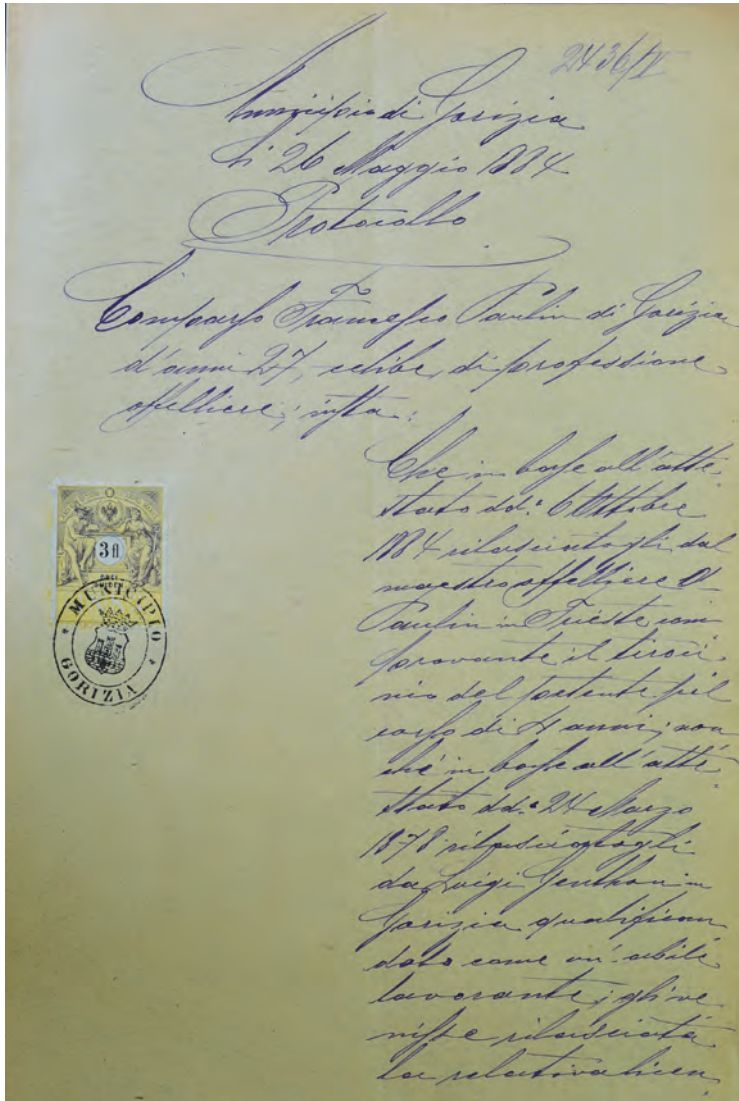 2436/IV
Municipio di Gorizia
li 26 Maggio 1884
Protocollo
Comparso Francesco Paulin di Gorizia
d'anni 27, celibe, di professione
offelliere; insta:
Che in base all'atte-
stato dd.º 6 Ottobre
1884 rilasciatogli dal
maestro offelliere
Paulin in Trieste com
provante il tiroci
nio del petente pel
corso di 4 anni; non
ché in base all'atte
stato dd.º 24 Marzo
1878 rilasciatogli
da Luigi in
Gorizia qualifican
dolo come un' abile
lavorante; gli ve
nisse rilasciata
la relativa licen
3 fl
MUNICIPIO
GORIZIA